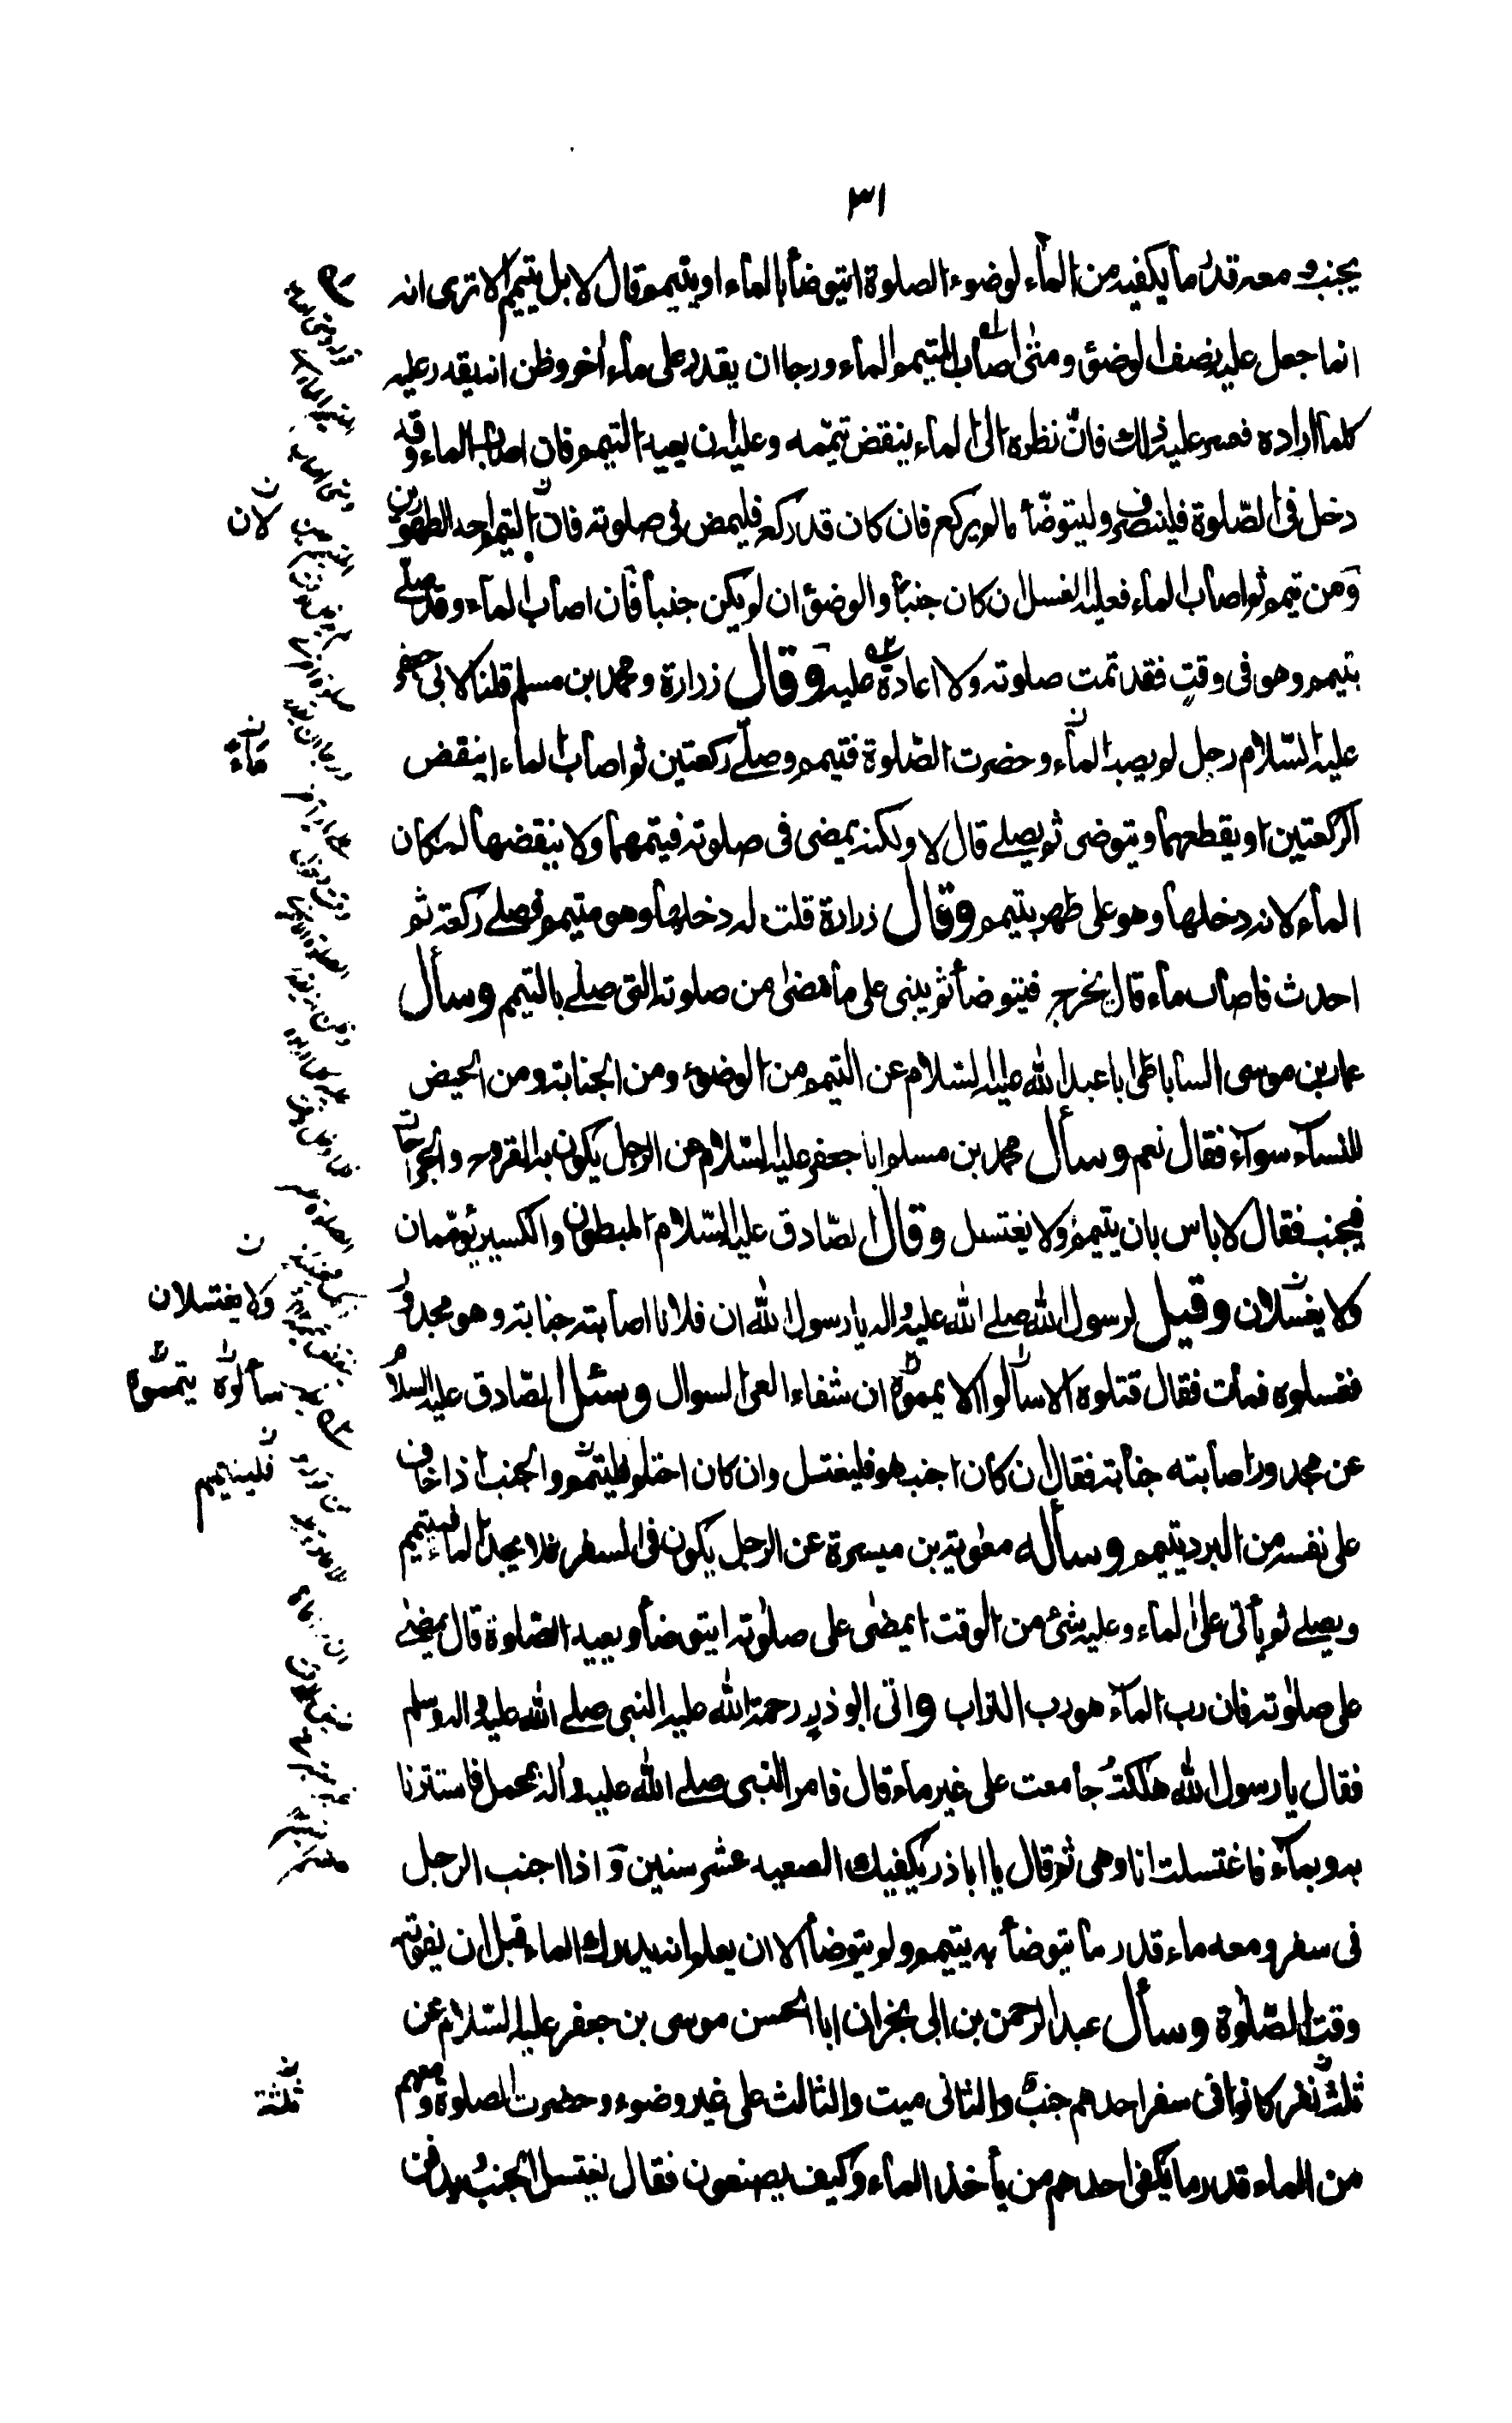 ٣١
يجنب و معه قدر ما يكفيه من الماء لوضوء الصلوة ايتوضأ بالماء او يتيمم قال لا بل يتيمم الا ترى انه
انما جعل عليه نصف الوضوء و متى اصاب المتيمم الماء و رجا ان يقدر على ماء اخر و ظن انه يقدر عليه
كلما اراده فعسر عليه ذلك فانّ نظره الى الماء ينقض تيمّمه و عليه ان يعيد التيمم فان اصاب الماء و قد
دخل فى الصّلوة فلينصرف و ليتوضّأ ما لم يركع فان كان قد ركع فليمض فى صلوته فان التيمم احد الطهورين
و من تيمم ثم اصاب الماء فعليه الغسل ان كان جنبًا و الوضوء ان لم يكن جنبا فان اصاب الماء و قد صلى
بتيمم و هو فى وقتٍ فقد تمت صلوته و لا اعادة عليه و قال زرارة و محمد بن مسلم قلنا لابى جعفر
عليه السّلام رجل لم يصب الماء و حضرت الصّلوة فتيمم و صلّى ركعتين ثم اصاب الماء اينقض
الركعتين او يقطعهما و يتوضى ثم يصلى قال لا و لكنه يمضى فى صلوته فيتمهما و لا ينقضها لمكان
الماء لانه دخلها و هو على طهر بتيمم و قال زرارة قلت له دخلها و هو متيمم فصلى ركعة ثم
احدث فاصاب ماء قال يخرج فيتوضأ ثم يبنى على ما مضى من صلوته التى صلى بالتيمم و سأل
عمار بن موسى الساباطى ابا عبد الله عليه السّلام عن التيمم من الوضوء و من الجنابة و من الحيض
للنساء سواء فقال نعم و سأل محمد بن مسلم ابا جعفر عليه السّلام عن الرجل يكون به القروح و الجراحات
فيجنب فقال لا باس بان يتيمم و لا يغتسل و قال الصّادق عليه السّلام المبطون و الكسير يؤمّمان
و لا يغسلان و قيل لرسول الله صلى الله عليه و اله يا رسول الله ان فلانا اصابته جنابة و هو مجدور
فغسلوه فمات فقال قتلوه الا سألوا الا يمموه ان شفاء العى السوال و سئل الصّادق عليه السلام
عن مجدور اصابته جنابة فقال ان كان اجنب هو فليغتسل و ان كان احتلم فليتيمم و الجنب اذا خاف
على نفسه من البرد يتيمم و سأله معوية بن ميسرة عن الرجل يكون فى السفر فلا يجد الماء فيتيمم
و يصلى ثم يأتى على الماء و عليه شئ من الوقت ايمضى على صلوته ايتوضأ و يعيد الصّلوة قال يمضى
على صلوته فان رب الماء هو رب التراب و اتى ابو ذر رحمة الله عليه النبى صلى الله عليه و اله و سلم
فقال يا رسول الله هلكتُ جامعت على غير ماء قال فامر النبى صلى الله عليه و اله بمحمل فاستترنا
به و بماء فاغتسلت انا و هى ثم قال يا ابا ذر يكفيك الصعيد عشر سنين و اذا اجنب الرجل
فى سفر و معه ماء قدر ما يتوضأ به يتيمم و لم يتوضأ الا ان يعلم انه يدرك الماء قبل ان يفوته
وقت الصّلوة و سأل عبد الرحمن بن ابى نجران ابا الحسن موسى بن جعفر عليه السّلام عن
ثلثة نفر كانوا فى سفر احدهم جنبٌ و الثانى ميت و الثالث على غير وضوء و حضرت الصلوة و معهم
من الماء قدر ما يكفى احدهم من يأخذ الماء و كيف يصنعون فقال يغتسل الجنب و يدفن
لان
ماءً
و لا يغتسلان
سألوه يتمموه
فليتيمم
ثلثة